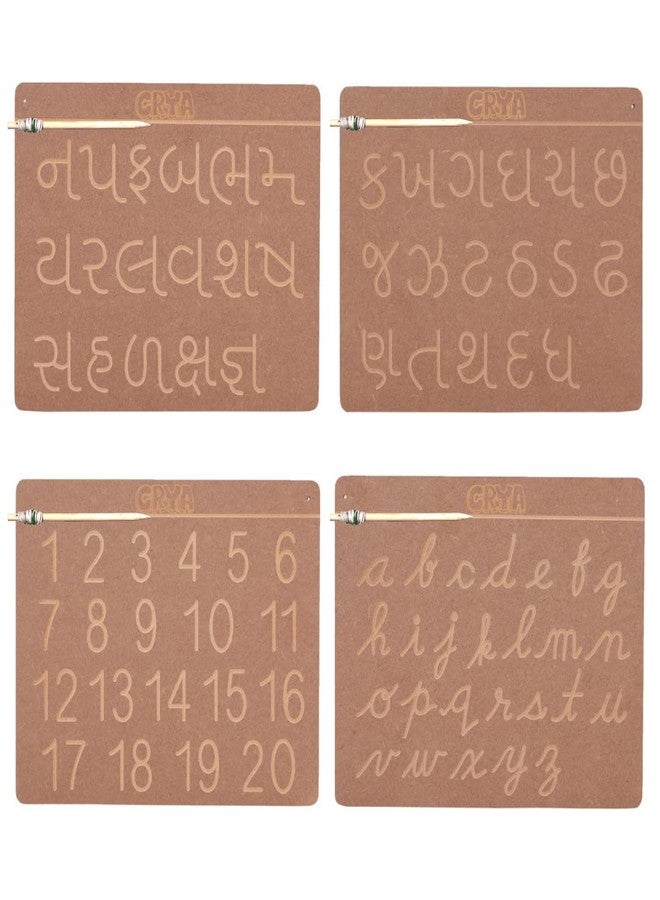 CRYA
ન પ ફ બ ભ મ
ય ર લ વ શ ષ
સ હ ળ ક્ષ જ્ઞ
CRYA
ક ખ ગ ઘ ચ છ
જ ઝ ટ ઠ ડ ઢ
ણ ત થ દ ધ
CRYA
1 2 3 4 5 6
7 8 9 10 11
12 13 14 15 16
17 18 19 20
CRYA
a b c d e f g
h i j k l m n
o p q r s t u
v w x y z